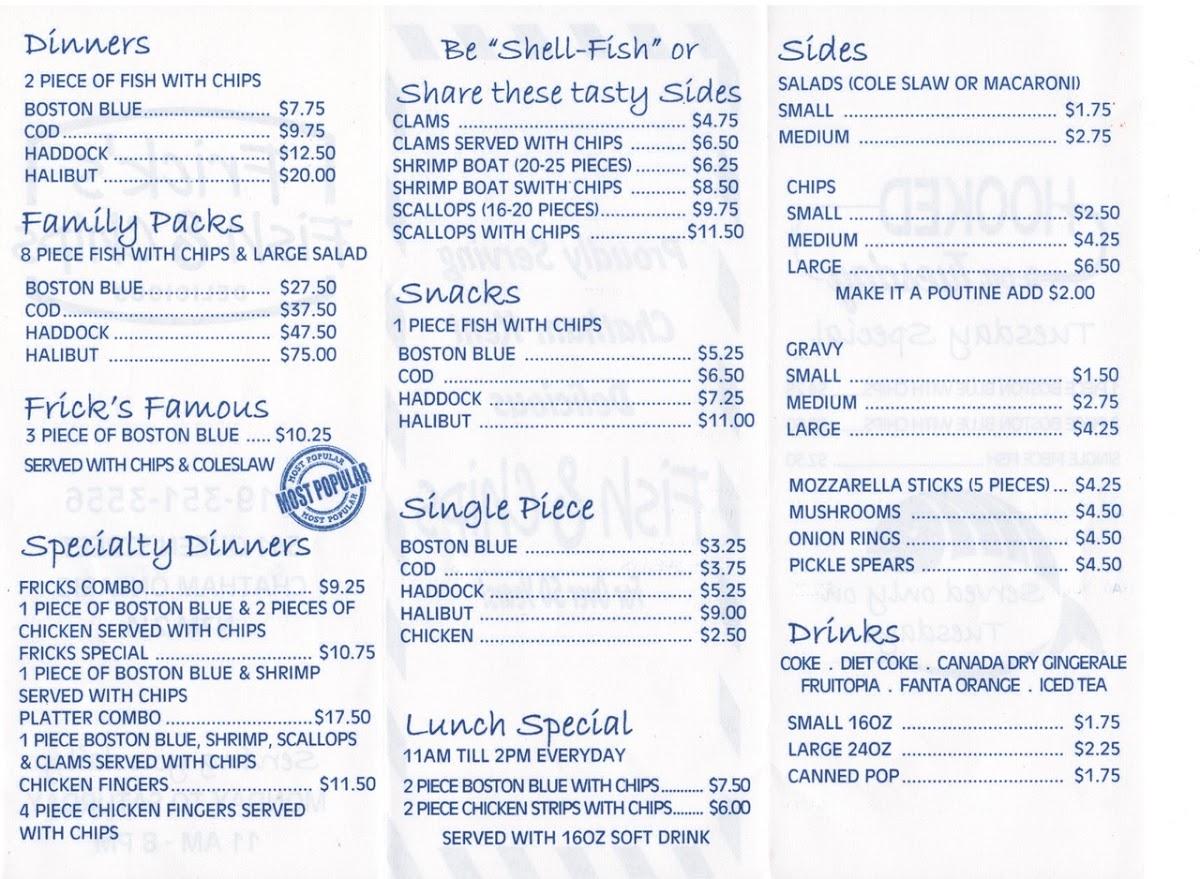 Dinners
2 PIECE OF FISH WITH CHIPS
BOSTON BLUE ........ $7.75
COD ........ $9.75
HADDOCK ........ $12.50
HALIBUT ........ $20.00
Family Packs
8 PIECE FISH WITH CHIPS & LARGE SALAD
BOSTON BLUE ........ $27.50
COD ........ $37.50
HADDOCK ........ $47.50
HALIBUT ........ $75.00
Frick's Famous
3 PIECE OF BOSTON BLUE ..... $10.25
SERVED WITH CHIPS & COLESLAW
MOST POPULAR
MOST POPULAR
MOST POPULAR
Specialty Dinners
FRICKS COMBO ........ $9.25
1 PIECE OF BOSTON BLUE & 2 PIECES OF
CHICKEN SERVED WITH CHIPS
FRICKS SPECIAL ........ $10.75
1 PIECE OF BOSTON BLUE & SHRIMP
SERVED WITH CHIPS
PLATTER COMBO ........ $17.50
1 PIECE BOSTON BLUE, SHRIMP, SCALLOPS
& CLAMS SERVED WITH CHIPS
CHICKEN FINGERS ........ $11.50
4 PIECE CHICKEN FINGERS SERVED
WITH CHIPS
Be "Shell-Fish" or
Share these tasty Sides
CLAMS ........ $4.75
CLAMS SERVED WITH CHIPS ........ $6.50
SHRIMP BOAT (20-25 PIECES) ........ $6.25
SHRIMP BOAT SWITH CHIPS ........ $8.50
SCALLOPS (16-20 PIECES) ........ $9.75
SCALLOPS WITH CHIPS ........ $11.50
Snacks
1 PIECE FISH WITH CHIPS
BOSTON BLUE ........ $5.25
COD ........ $6.50
HADDOCK ........ $7.25
HALIBUT ........ $11.00
Single Piece
BOSTON BLUE ........ $3.25
COD ........ $3.75
HADDOCK ........ $5.25
HALIBUT ........ $9.00
CHICKEN ........ $2.50
Lunch Special
11AM TILL 2PM EVERYDAY
2 PIECE BOSTON BLUE WITH CHIPS ........ $7.50
2 PIECE CHICKEN STRIPS WITH CHIPS ........ $6.00
SERVED WITH 16OZ SOFT DRINK
Sides
SALADS (COLE SLAW OR MACARONI)
SMALL ........ $1.75
MEDIUM ........ $2.75
CHIPS
SMALL ........ $2.50
MEDIUM ........ $4.25
LARGE ........ $6.50
MAKE IT A POUTINE ADD $2.00
GRAVY
SMALL ........ $1.50
MEDIUM ........ $2.75
LARGE ........ $4.25
MOZZARELLA STICKS (5 PIECES) ... $4.25
MUSHROOMS ........ $4.50
ONION RINGS ........ $4.50
PICKLE SPEARS ........ $4.50
Drinks
COKE . DIET COKE . CANADA DRY GINGERALE
FRUITOPIA . FANTA ORANGE . ICED TEA
SMALL 16OZ ........ $1.75
LARGE 24OZ ........ $2.25
CANNED POP ........ $1.75